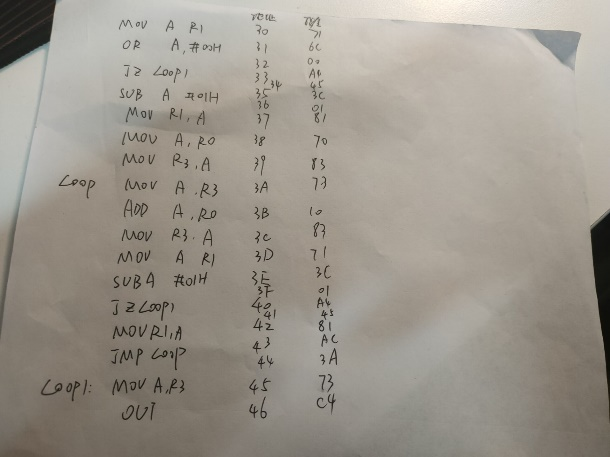 地址
MOV A R1 30 71
OR A, #00H 31 6C
32 00
JZ Loop1 33 A4
34 45
SUB A #01H 35 3C
36 01
MOV R1, A 37 81
MOV A, R0 38 70
MOV R3, A 39 83
Loop MOV A, R3 3A 73
ADD A, R0 3B 10
MOV R3, A 3C 83
MOV A R1 3D 71
SUB A #01H 3E 3C
3F 01
JZ Loop1 40 A4
41 45
MOV R1, A 42 81
43 AC
JMP Loop 44 3A
Loop1: MOV A, R3 45 73
OUT 46 C4